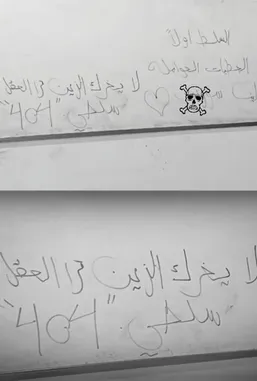 السلط اولاً
لا يغرك الزين ترا العقل
سلطي "404"
لا يغرك الزين ترا العقل
سلطي "404"